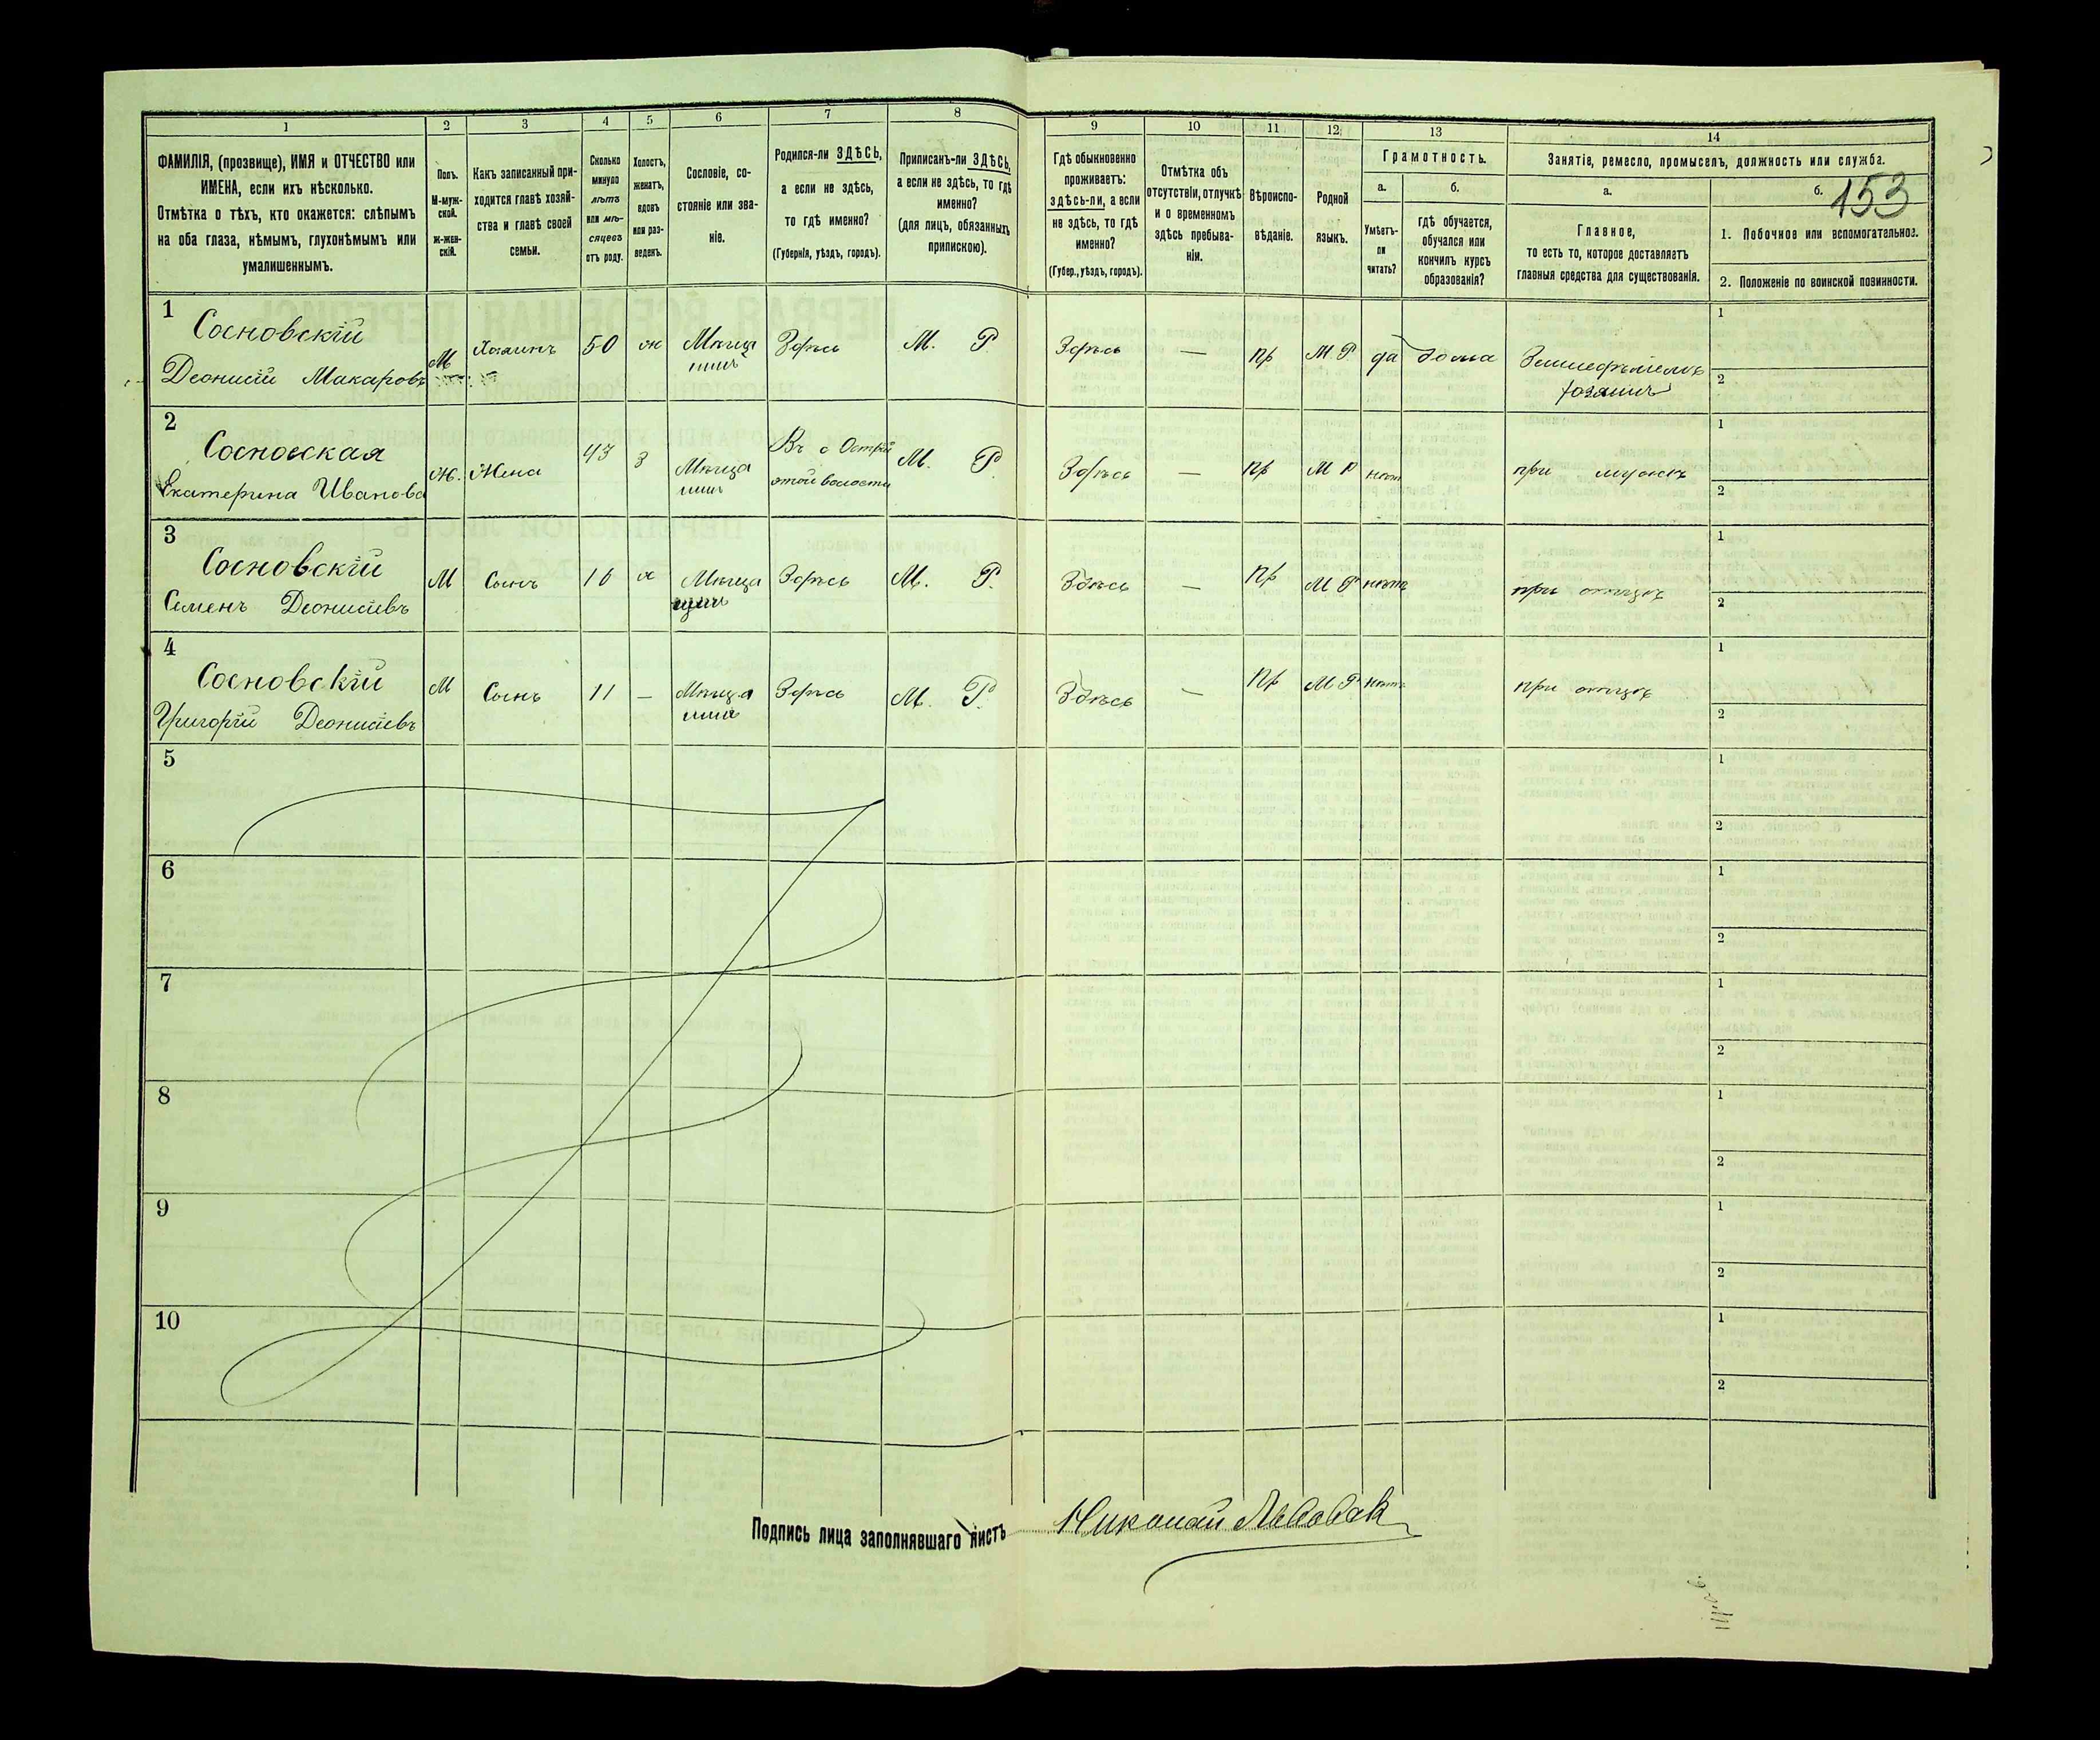 153
1 2 3 4 5 6 7 8 9 10 11 12 13 14
ФАМИЛІЯ, (прозвище), ИМЯ и ОТЧЕСТВО или
ИМЕНА, если ихъ нѣсколько.
Отмѣтка о тѣхъ, кто окажется: слѣпымъ
на оба глаза, нѣмымъ, глухонѣмымъ или
умалишеннымъ.
Полъ.
М-муж-
ской.
Ж-жен-
скій.
Какъ записанный при-
ходится главѣ хозяй-
ства и главѣ своей
семьи.
Сколько
минуло
лѣтъ
или мѣ-
сяцевъ
отъ роду.
Холостъ,
женатъ,
вдовъ
или раз-
веденъ.
Сословіе, со-
стояніе или зва-
ніе.
Родился-ли ЗДѢСЬ,
а если не здѣсь,
то гдѣ именно?
(Губернія, уѣздъ, городъ).
Приписанъ-ли ЗДѢСЬ,
а если не здѣсь, то гдѣ
именно?
(для лицъ, обязанныхъ
припискою).
Гдѣ обыкновенно
проживаетъ:
здѣсь-ли, а если
не здѣсь, то гдѣ
именно?
(Губер., уѣздъ, городъ).
Отмѣтка объ
отсутствіи, отлучкѣ
и о временномъ
здѣсь пребыва-
ніи.
Вѣроиспо-
вѣданіе.
Родной
языкъ.
Грамотность.
а. б.
Умѣетъ-
ли
читать?
гдѣ обучается,
обучался или
кончилъ курсъ
образованія?
Занятіе, ремесло, промыселъ, должность или служба.
а. б.
Главное,
то есть то, которое доставляетъ
главныя средства для существованія.
1. Побочное или вспомогательное.
2. Положеніе по воинской повинности.
1
Сосновскій
Деонисій Макаровъ М Хозяинъ 50 ж Мѣща Здѣсь М. Р. Здѣсь — пр М Р да дома
хозяинъ
1
2
2
Сосновская
Екатерина Иванова Ж. Жена 43 з Мѣща Въ с этой волости М. Р. Здѣсь — пр М Р нѣт при мужѣ
1
2
3
Сосновскій
Семенъ Деонисіевъ М Сынъ 16 х Мѣща Здѣсь М. Р. Здѣсь — пр М Р нѣтъ при отцѣ
1
2
4
Сосновскій
Григорій Деонисіевъ М Сынъ 11 — Мѣща Здѣсь М. Р. Здѣсь — пр М Р нѣтъ при отцѣ
1
2
5
1
2
6
1
2
7
1
2
8
1
2
9
1
2
10
1
2
Подпись лица заполнявшаго листъ Николай